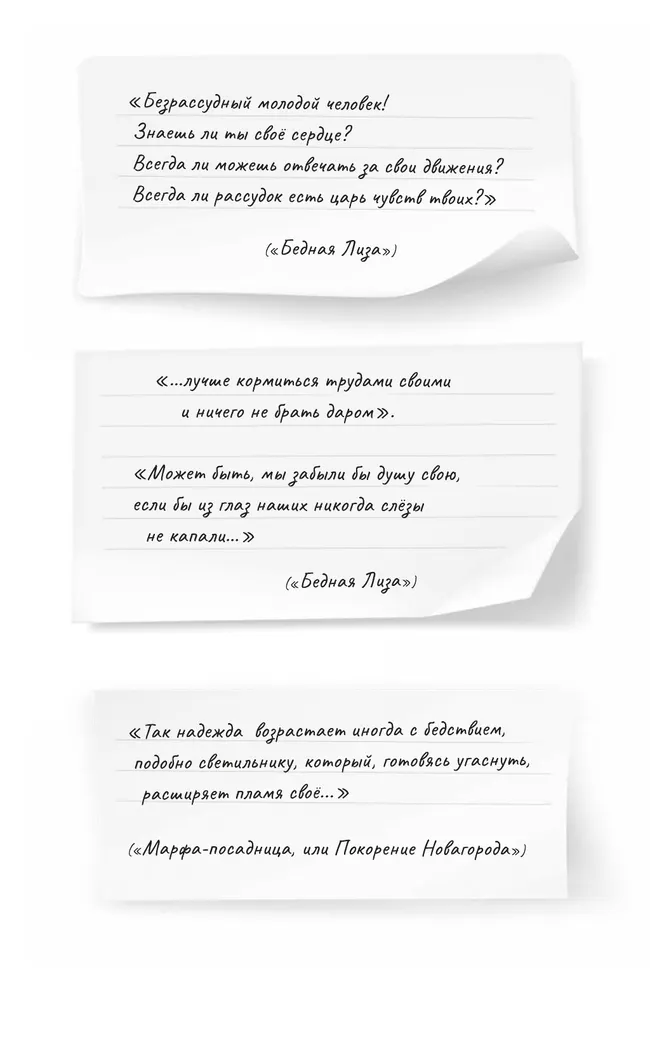 «Безрассудный молодой человек!
Знаешь ли ты своё сердце?
Всегда ли можешь отвечать за свои движения?
Всегда ли рассудок есть царь чувств твоих?»
(«Бедная Лиза»)
«...лучше кормиться трудами своими
и ничего не брать даром».
«Может быть, мы забыли бы душу свою,
если бы из глаз наших никогда слёзы
не капали...»
(«Бедная Лиза»)
«Так надежда возрастает иногда с бедствием,
подобно светильнику, который, готовясь угаснуть,
расширяет пламя своё...»
(«Марфа-посадница, или Покорение Новагорода»)